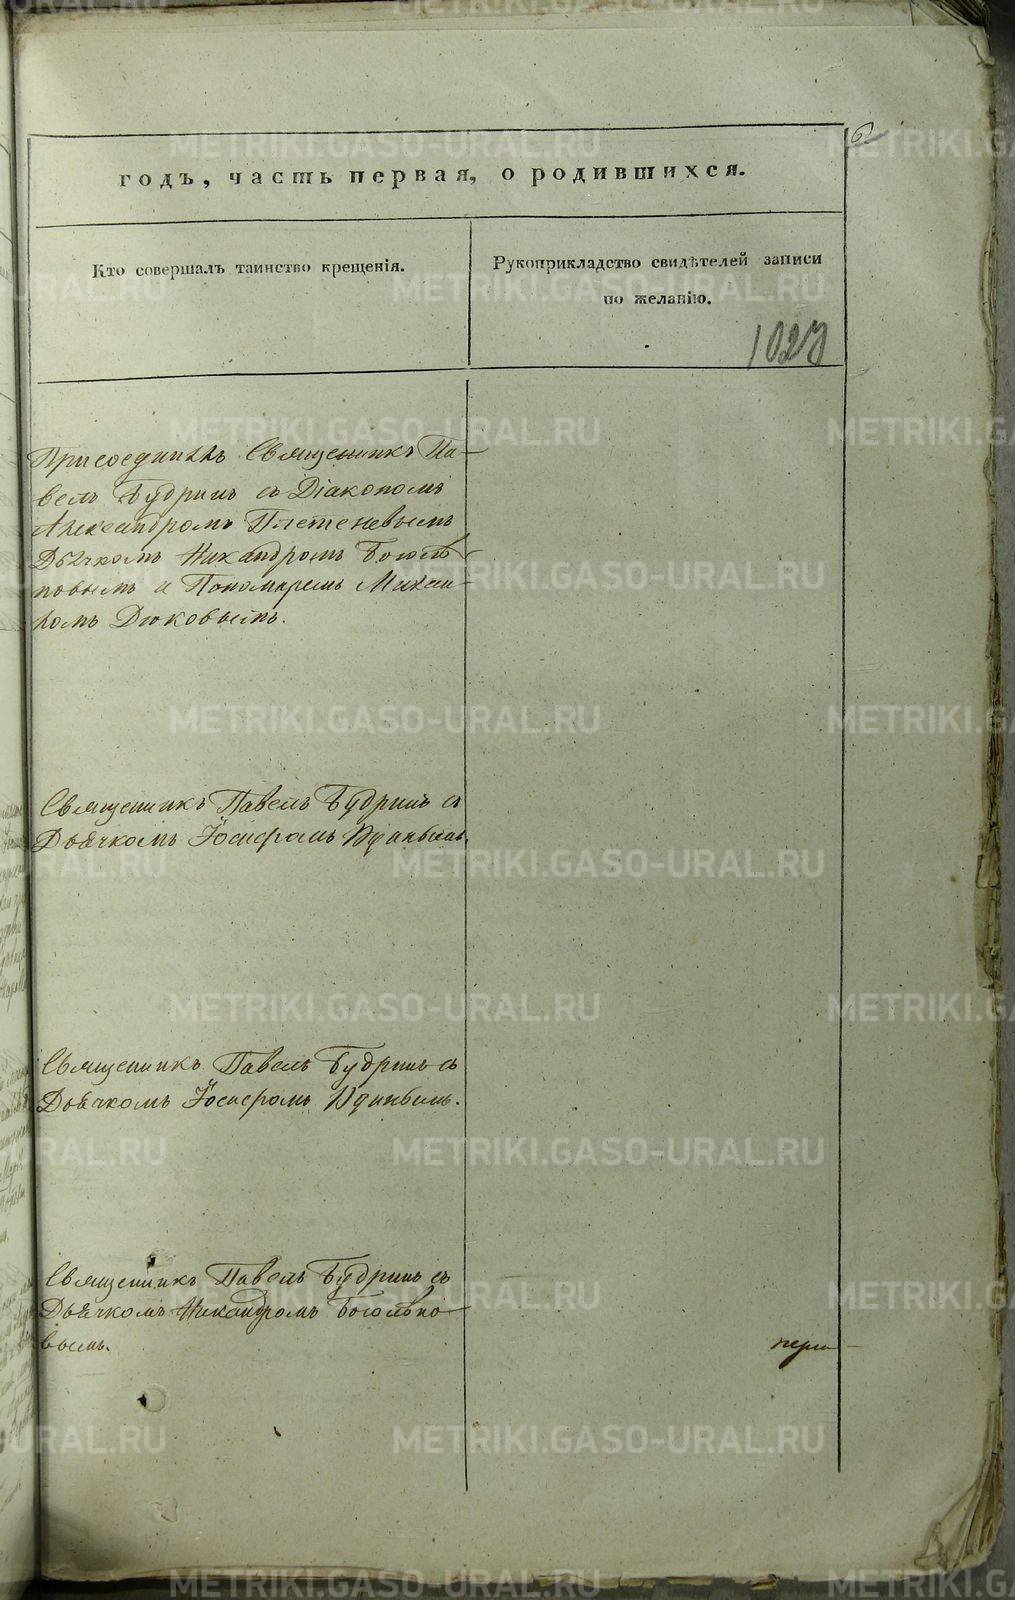 годъ, часть первая, о родившихся.
Кто совершалъ таинство крещенія.
Рукоприкладство свидѣтелей записи
по желанію.
Присоединилъ Священникъ Па-
велъ Будринъ съ Діакономъ
Александромъ Плетеневымъ
Дьячкомъ Никандромъ Боголѣ-
повымъ и Пономаремъ Михаи-
ломъ Дюковымъ.
Священникъ Павелъ Будринъ съ
Дьячкомъ Іосифомъ
Священникъ Павелъ Будринъ съ
Дьячкомъ Іосифомъ
Священникъ Павелъ Будринъ съ
Дьячкомъ Никандромъ Боголѣпо-
вымъ.
METRIKI.GASO-URAL.RU